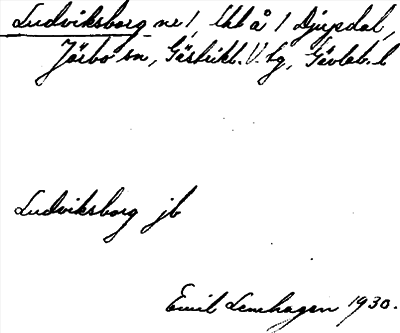 Ludviksborg ne!, lht å 1 Djupdal,
Järbo sn, Gästrikl. V. tg, Gävleb. l
Ludviksborg jb
Emil Lenhagen 1930.